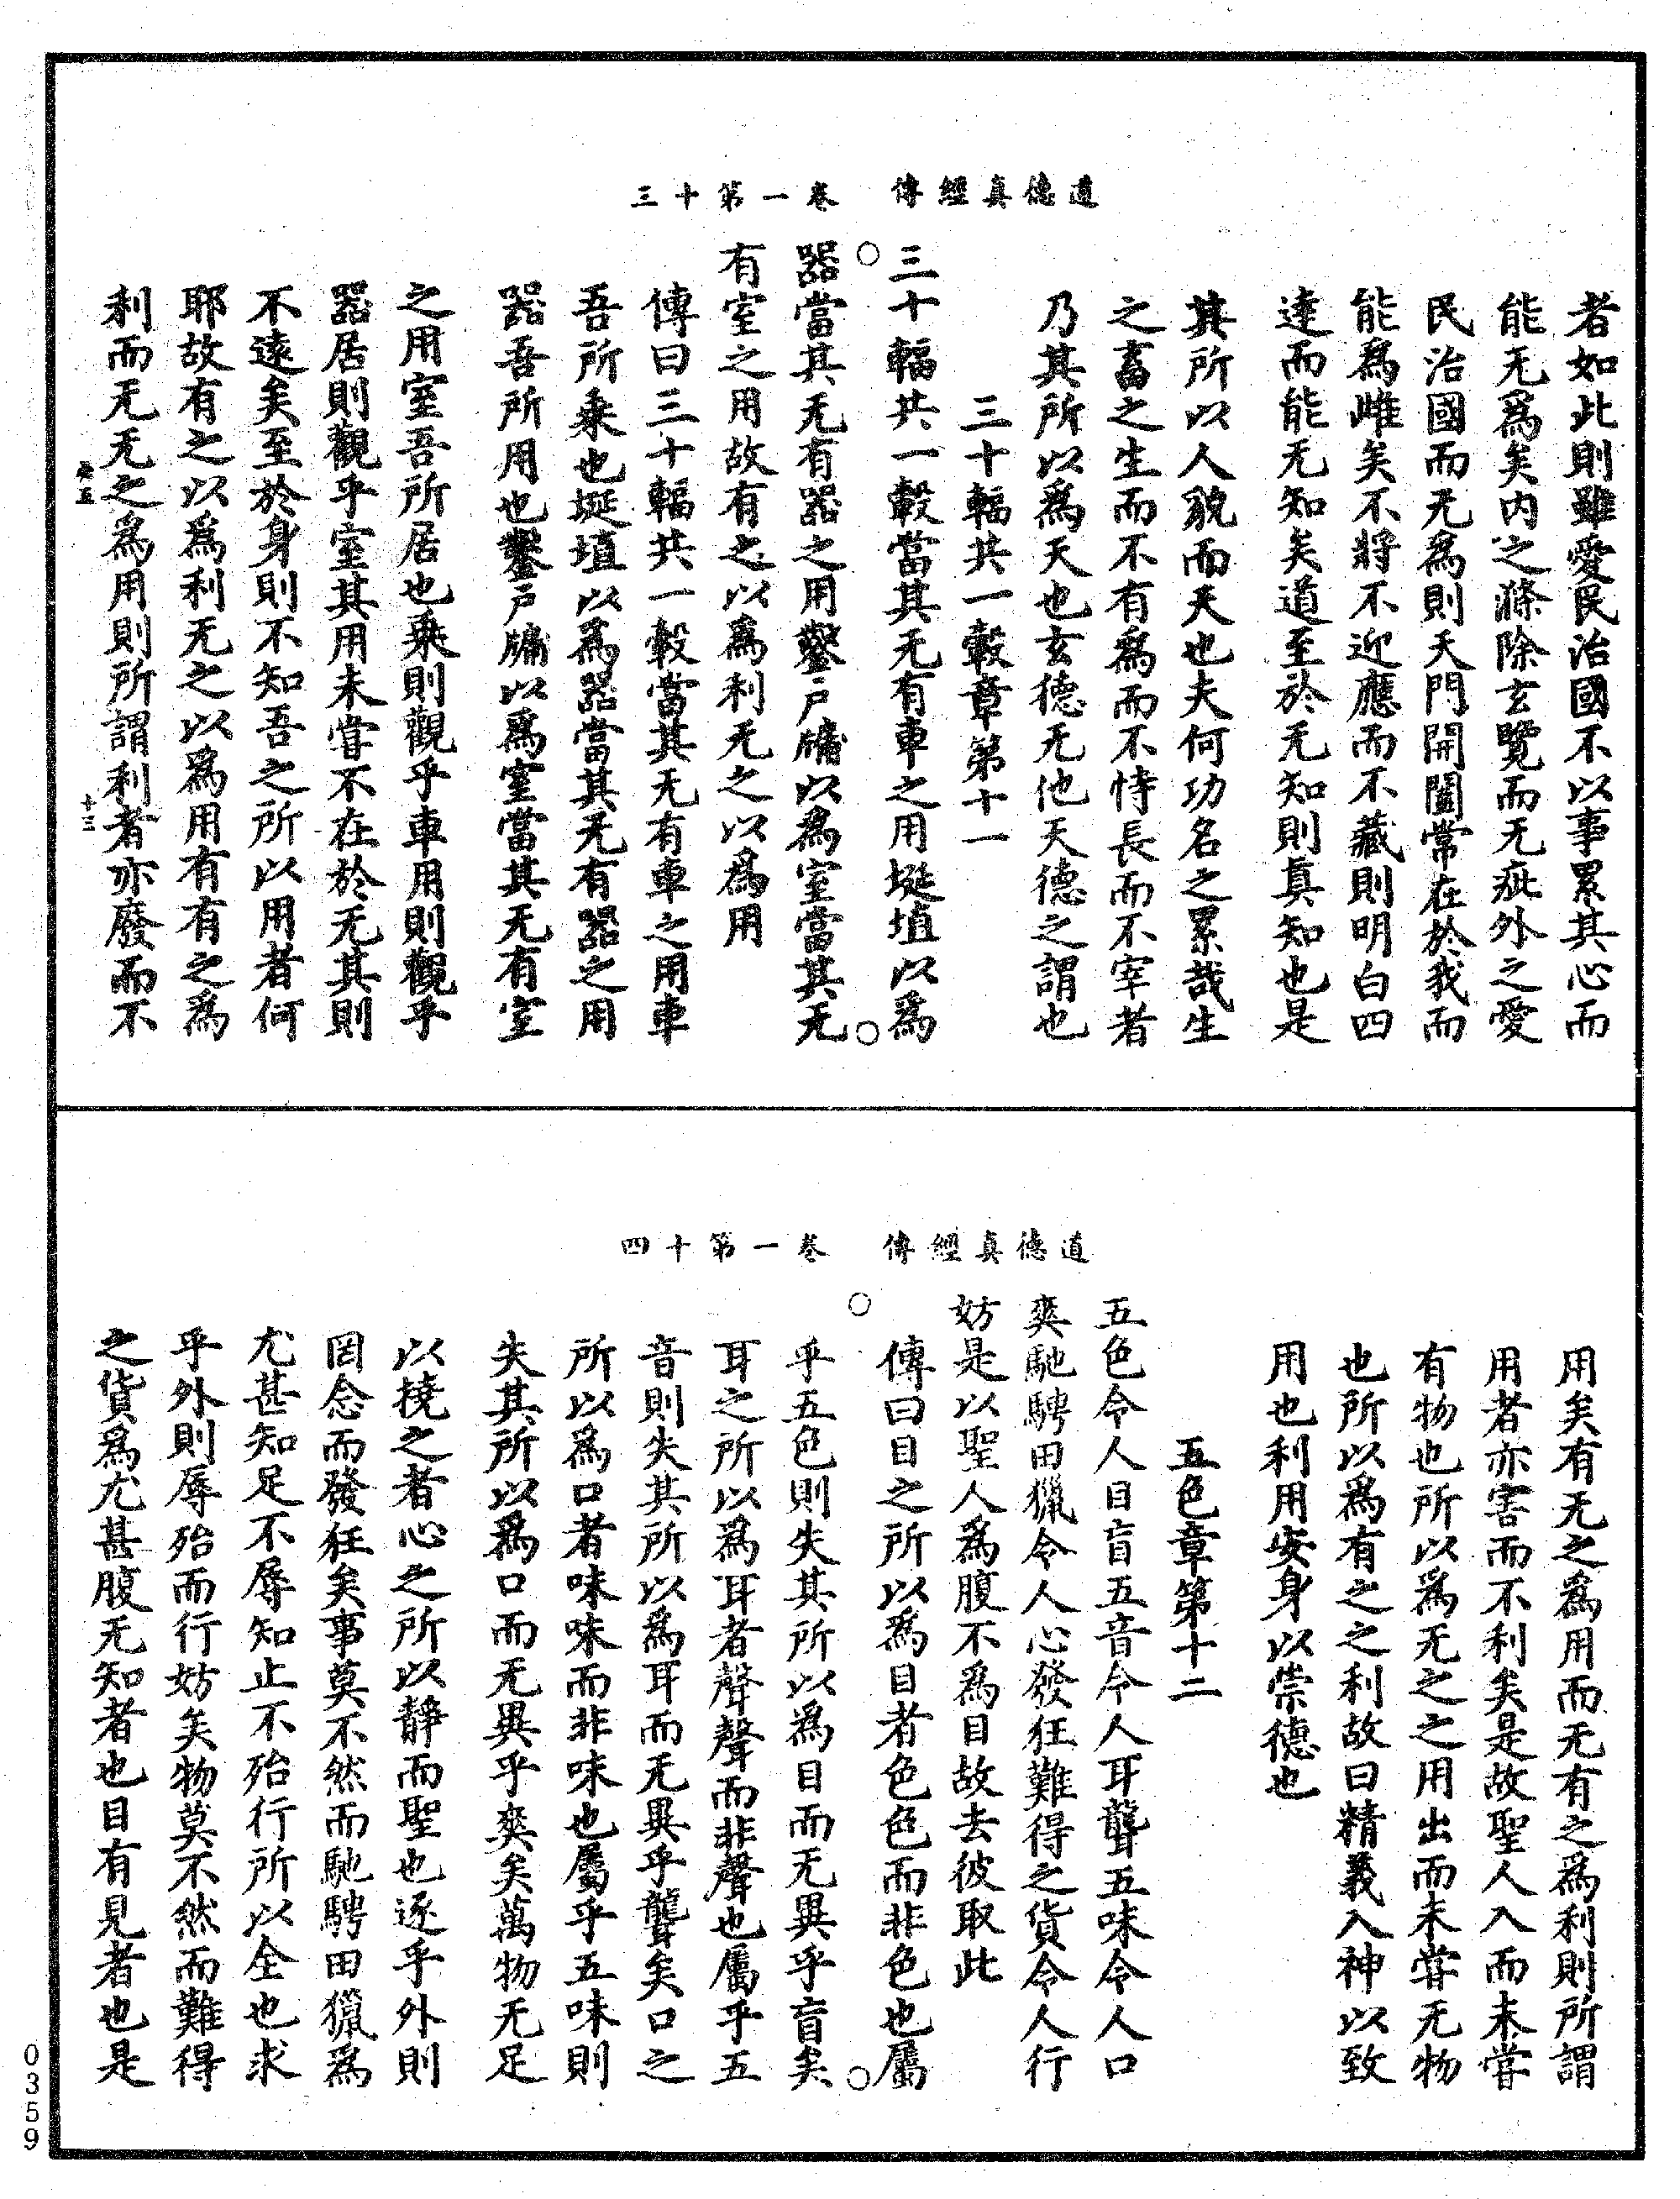 道德真經傳　卷一第十三
者如此則雖愛民治國不以事累其心而
能无爲矣內之滌除玄覽而无疵外之愛
民治國而无爲則天門開闔常在於我而
能爲雌矣不將不迎應而不藏則明白四
達而能无知矣道至於无知則真知也是
其所以人貌而天也夫何功名之累哉生
之畜之生而不有爲而不恃長而不宰者
乃其所以爲天也玄德无他天德之謂也
三十輻共一轂章第十一
三十輻共一轂當其无有車之用埏埴以爲
器當其无有器之用鑿戶牖以爲室當其无
有室之用故有之以爲利无之以爲用
傳曰三十輻共一轂當其无有車之用車
吾所乘也埏埴以爲器當其无有器之用
器吾所用也鑿戶牖以爲室當其无有室
之用室吾所居也乘則觀乎車用則觀乎
器居則觀乎室其用未嘗不在於无其則
不遠矣至於身則不知吾之所以用者何
耶故有之以爲利无之以爲用有有之爲
利而无无之爲用則所謂利者亦廢而不
十三
道德真經傳　卷一第十四
用矣有无之爲用而无有之爲利則所謂
用者亦害而不利矣是故聖人入而未嘗
有物也所以爲无之之用出而未嘗无物
也所以爲有之之利故曰精義入神以致
用也利用安身以崇德也
五色章第十二
五色令人目盲五音令人耳聾五味令人口
爽馳騁田獵令人心發狂難得之貨令人行
妨是以聖人爲腹不爲目故去彼取此
傳曰目之所以爲目者色色而非色也屬
乎五色則失其所以爲目而无異乎盲矣
耳之所以爲耳者聲聲而非聲也屬乎五
音則失其所以爲耳而无異乎聾矣口之
所以爲口者味味而非味也屬乎五味則
失其所以爲口而无異乎爽矣萬物无足
以撓之者心之所以靜而聖也逐乎外則
罔念而發狂矣事莫不然而馳騁田獵爲
尤甚知足不辱知止不殆行所以全也求
乎外則辱殆而行妨矣物莫不然而難得
之貨爲尤甚腹无知者也目有見者也是
0359